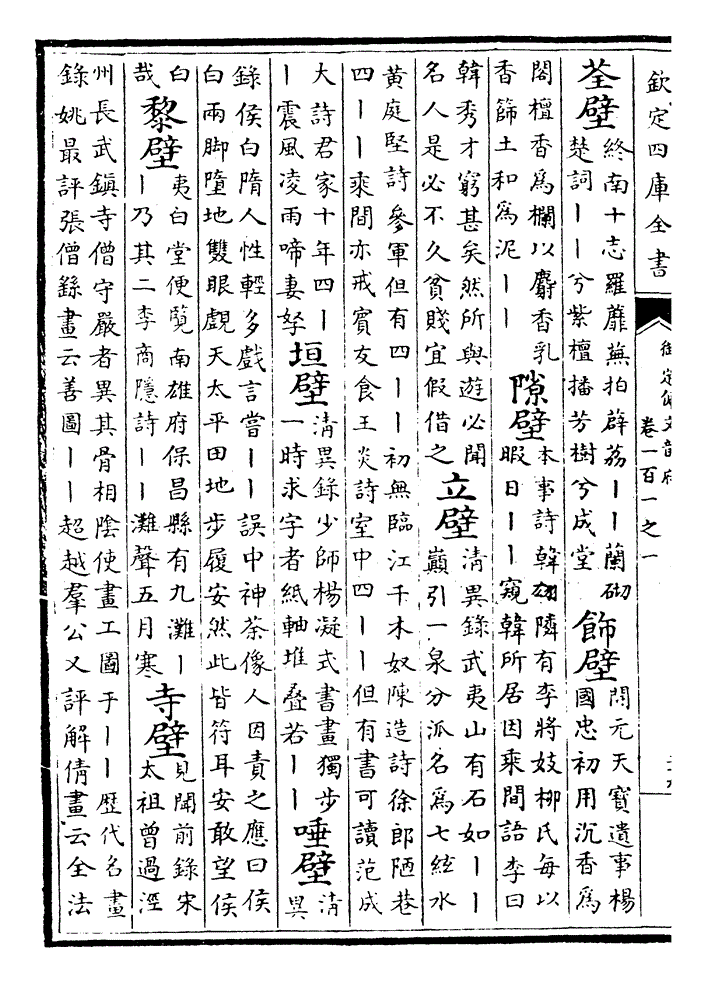 欽定四庫全書
御定佩文韻府
卷一百一之一
荃壁
終南十志羅蘼蕪拍薜荔丨丨蘭砌
楚詞丨丨兮紫檀播芳樹兮成堂
飾壁
開元天寶遺事楊
國忠初用沉香為
閣檀香為欄以麝香乳
香篩土和為泥丨丨
隙壁
本事詩韓翃隣有李將妓柳氏每以
暇日丨丨窺韓所居因乘間語李曰
韓秀才窮甚矣然所與遊必聞
名人是必不久貧賤宜假借之
立壁
清異錄武夷山有石如丨丨
巔引一泉分派名為七絃水
黃庭堅詩參軍但有四丨丨初無臨江千木奴陳造詩徐郎陋巷
四丨丨乘間亦戒賓友食王炎詩室中四丨丨但有書可讀范成
大詩君家十年四丨
丨震風凌雨啼妻孥
垣壁
清異錄少師楊凝式書畫獨步
一時求字者紙軸堆疊若丨丨
唾壁
清
異
錄侯白隋人性輕多戲言嘗丨丨誤中神荼像人因責之應曰侯
白兩脚墮地雙眼覷天太平田地步履安然此皆符耳安敢望侯
白
哉
黎壁
夷白堂便覽南雄府保昌縣有九灘丨
丨乃其二李商隱詩丨丨灘聲五月寒
寺壁
見聞前錄宋
太祖曾過涇
州長武鎮寺僧守嚴者異其骨相陰使畫工圖于丨丨歷代名畫
錄姚最評張僧繇畫云善圖丨丨超越羣公又評解倩畫云全法